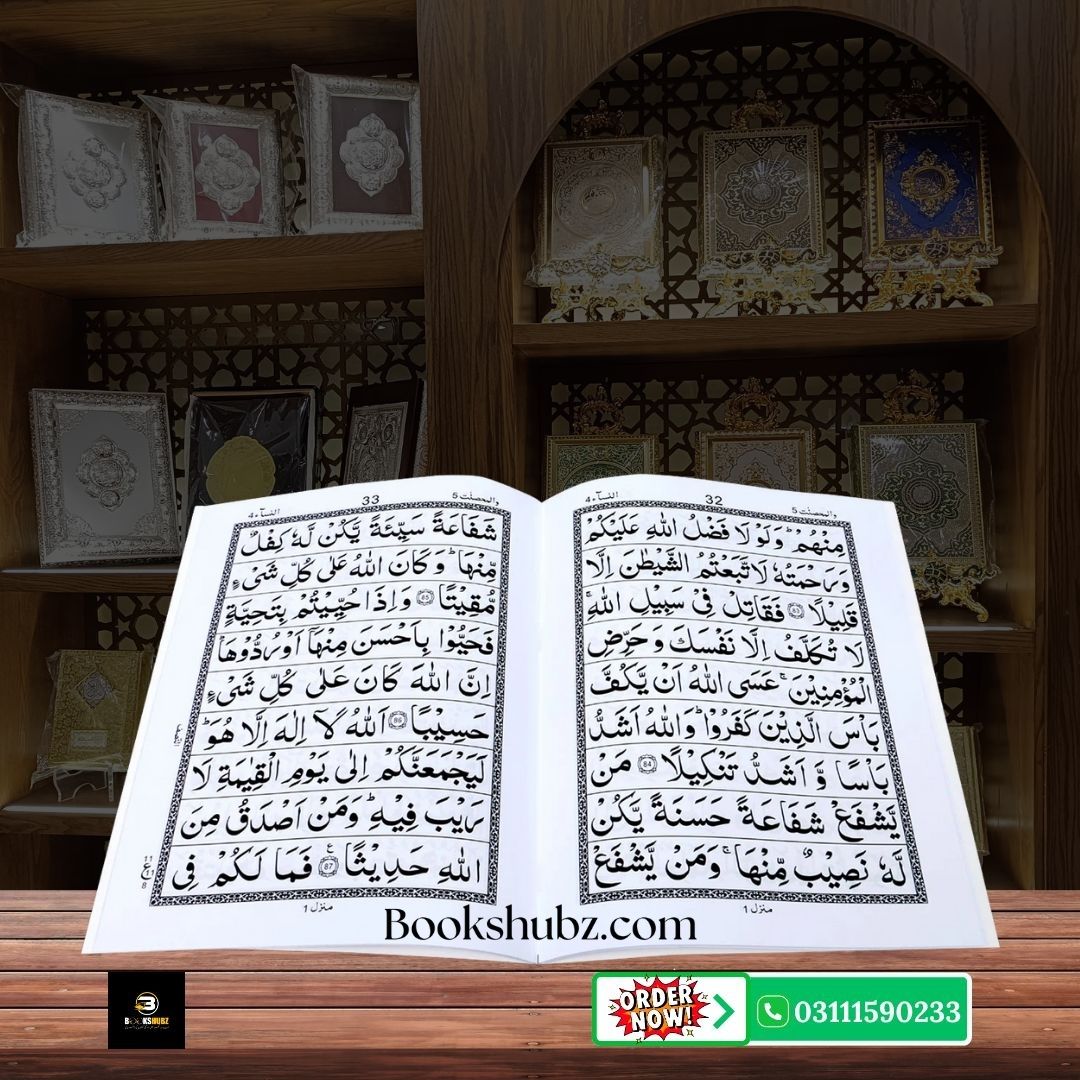 والمحصنٰت 5 32 النسآء 4
مِنْهُمْ ؕ وَلَوْ لَا فَضْلُ اللّٰهِ عَلَيْكُمْ
وَرَحْمَتُهٗ لَا تَّبَعْتُمُ الشَّيْطٰنَ اِلَّا
قَلِيْلًا 83 فَقَاتِلْ فِىْ سَبِيْلِ اللّٰهِ ۚ
لَا تُكَلَّفُ اِلَّا نَفْسَكَ وَ حَرِّضِ
الْمُؤْمِنِيْنَ ۚ عَسَى اللّٰهُ اَنْ يَّكُفَّ
بَاْسَ الَّذِيْنَ كَفَرُوْا ؕ وَاللّٰهُ اَشَدُّ
بَاْسًا وَّ اَشَدُّ تَنْكِيْلًا 84 مَنْ
يَّشْفَعْ شَفَاعَةً حَسَنَةً يَّكُنْ
لَّهٗ نَصِيْبٌ مِّنْهَا ۚ وَمَنْ يَّشْفَعْ
منزل 1
والمحصنٰت 5 33 النسآء 4
شَفَاعَةً سَيِّئَةً يَّكُنْ لَّهٗ كِفْلٌ
مِّنْهَا ؕ وَ كَانَ اللّٰهُ عَلٰى كُلِّ شَىْءٍ
مُّقِيْتًا 85 وَ اِذَا حُيِّيْتُمْ بِتَحِيَّةٍ
فَحَيُّوْا بِاَحْسَنَ مِنْهَاۤ اَوْ رُدُّوْهَا
اِنَّ اللّٰهَ كَانَ عَلٰى كُلِّ شَىْءٍ
حَسِيْبًا 86 اَللّٰهُ لَاۤ اِلٰهَ اِلَّا هُوَ ؕ
لَيَجْمَعَنَّكُمْ اِلٰى يَوْمِ الْقِيٰمَةِ لَا
رَيْبَ فِيْهِ ؕ وَمَنْ اَصْدَقُ مِنَ
اللّٰهِ حَدِيْثًا 87 فَمَا لَكُمْ فِى
11
ع
8
منزل 1
Bookshubz.com
BOOKSHUBZ
ORDER NOW!
03111590233